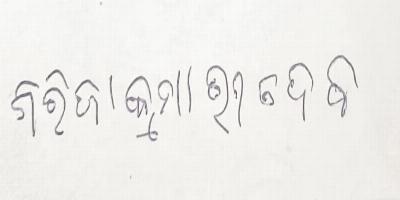 ଗିରିଜା କୁମାରୀ ଦେବ